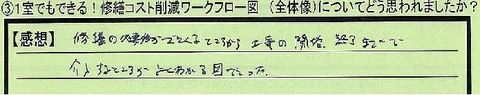 ③1室でもできる!修繕コスト削減ワークフロー図 (全体像)についてどう思われましたか?
【感想】 修繕の必要がでてくるところから 工事の 開始、終了まで
ところが よくわかる 図でした